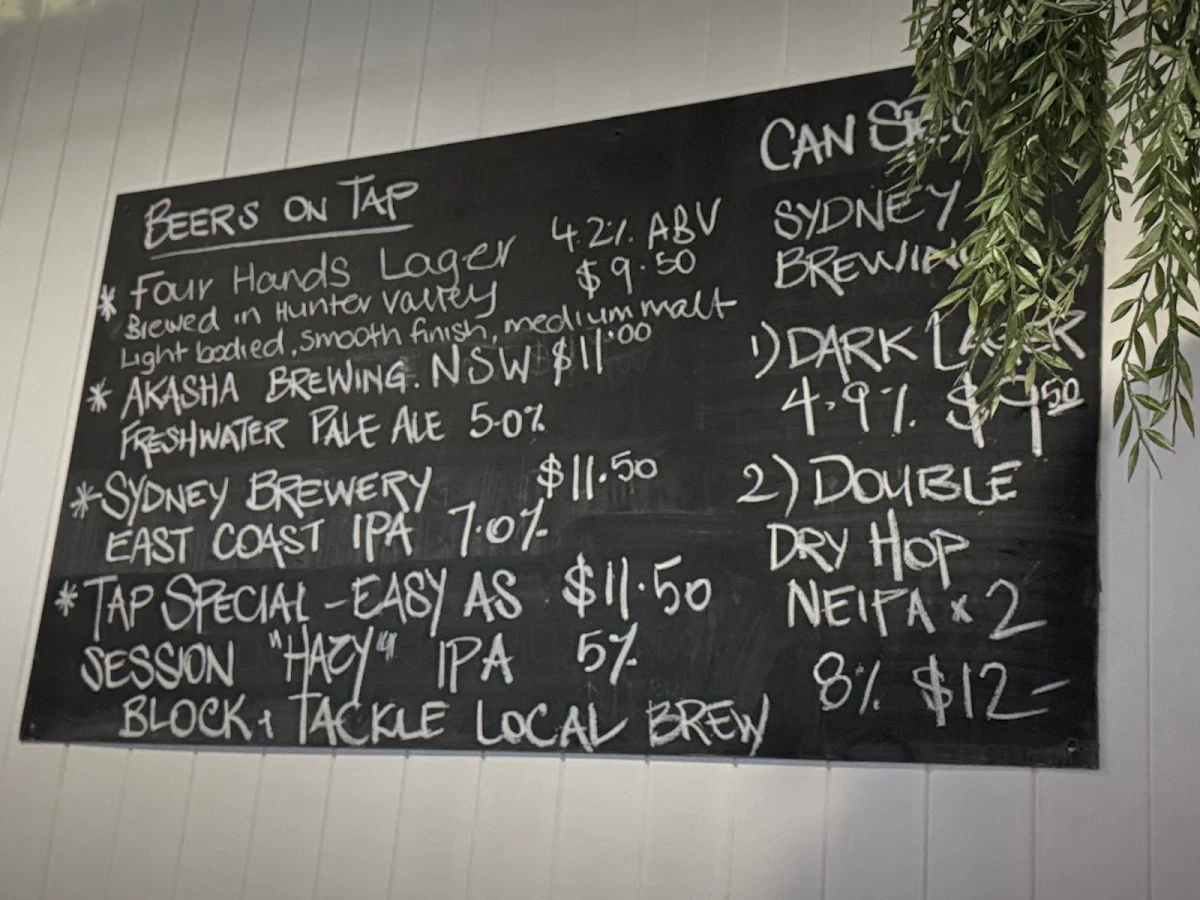 BEERS ON TAP
* Four Hands Lager 4.2% ABV
Brewed in Hunter Valley $9.50
Light bodied, Smooth finish, medium malt
* AKASHA BREWING. NSW $11.00
FRESHWATER PALE ALE 5.0%
* SYDNEY BREWERY $11.50
EAST COAST IPA 7.0%
* TAP SPECIAL - EASY AS $11.50
SESSION "HAZY" IPA 5%
BLOCK + TACKLE LOCAL BREW
CAN
SYDNEY
1) DARK LAGER
4.9% $9.50
2) DOUBLE
DRY HOP
NEIPA x 2
8% $12-